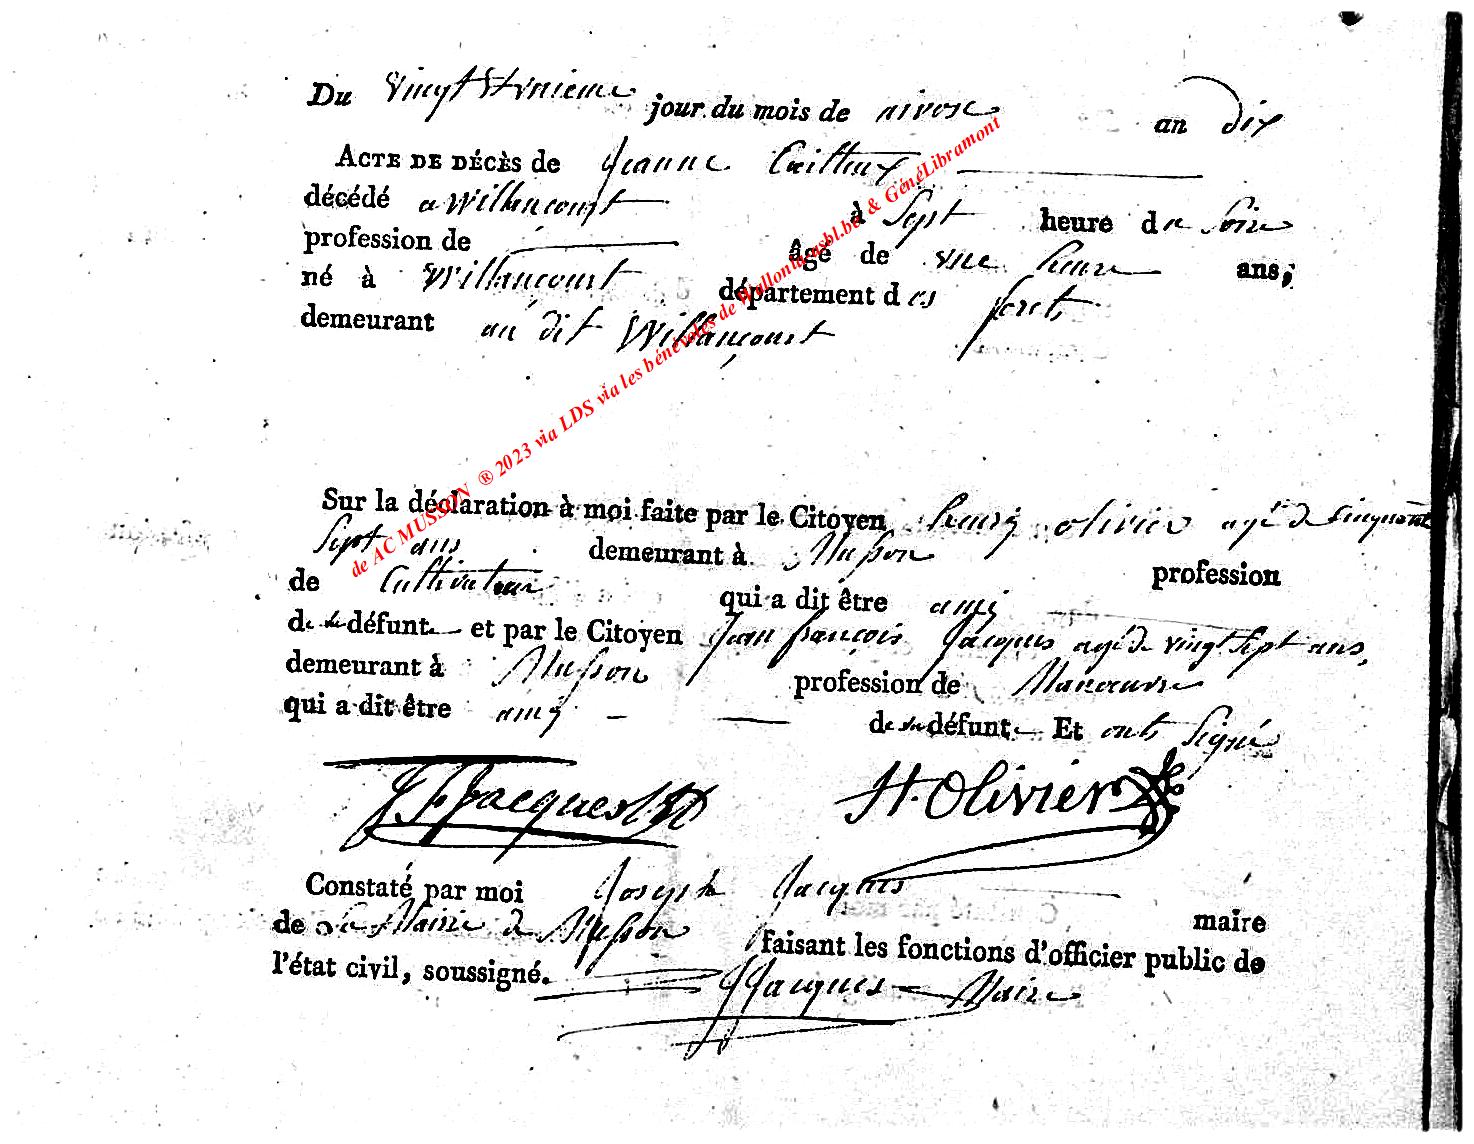 Du vingt et unieme jour du mois de nivose an dix
ACTE DE DÉCÈS de Jeanne Cailteux
décédé a Willancourt à Sept heure du Soire
profession de âgé de une heure ans,
né à Willancourt département des forets
demeurant au dit Willancourt
Sur la déclaration à moi faite par le Citoyen henrÿ olivier agé de cinquante
Sept ans demeurant à Musson profession
de Cultivateur qui a dit être amÿ
de la défunte et par le Citoyen Jean françois Jacques agé de vingt Sept ans,
demeurant à Musson profession de Manoeuvre
qui a dit être amÿ de la défunte Et onts Signé
J F Jacques H. Olivier
Constaté par moi Joseph Jacques maire
de la Mairie de Musson faisant les fonctions d'officier public de
l'état civil, soussigné. J Jacques Maire
de AC MUSSON ® 2023 via LDS via les bénévoles de Wallonica asbl.be & GénéLibramont